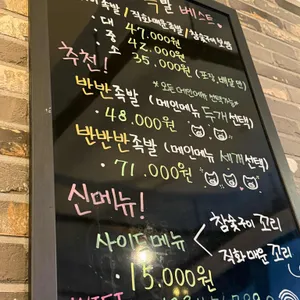 족발 베스트
족발 / 직화매운족발 / 참숯구이 족발
· 대 47,000원
· 중 42,000원
· 소 35,000원 (포장, 배달만)
추천!
반반족발 (메인메뉴 두개 선택)
· 48,000원
반반반족발 (메인메뉴 세개 선택)
· 71,000원
신메뉴!
사이드메뉴 < 참숯구이 꼬리
직화매운 꼬리
· 15,000원